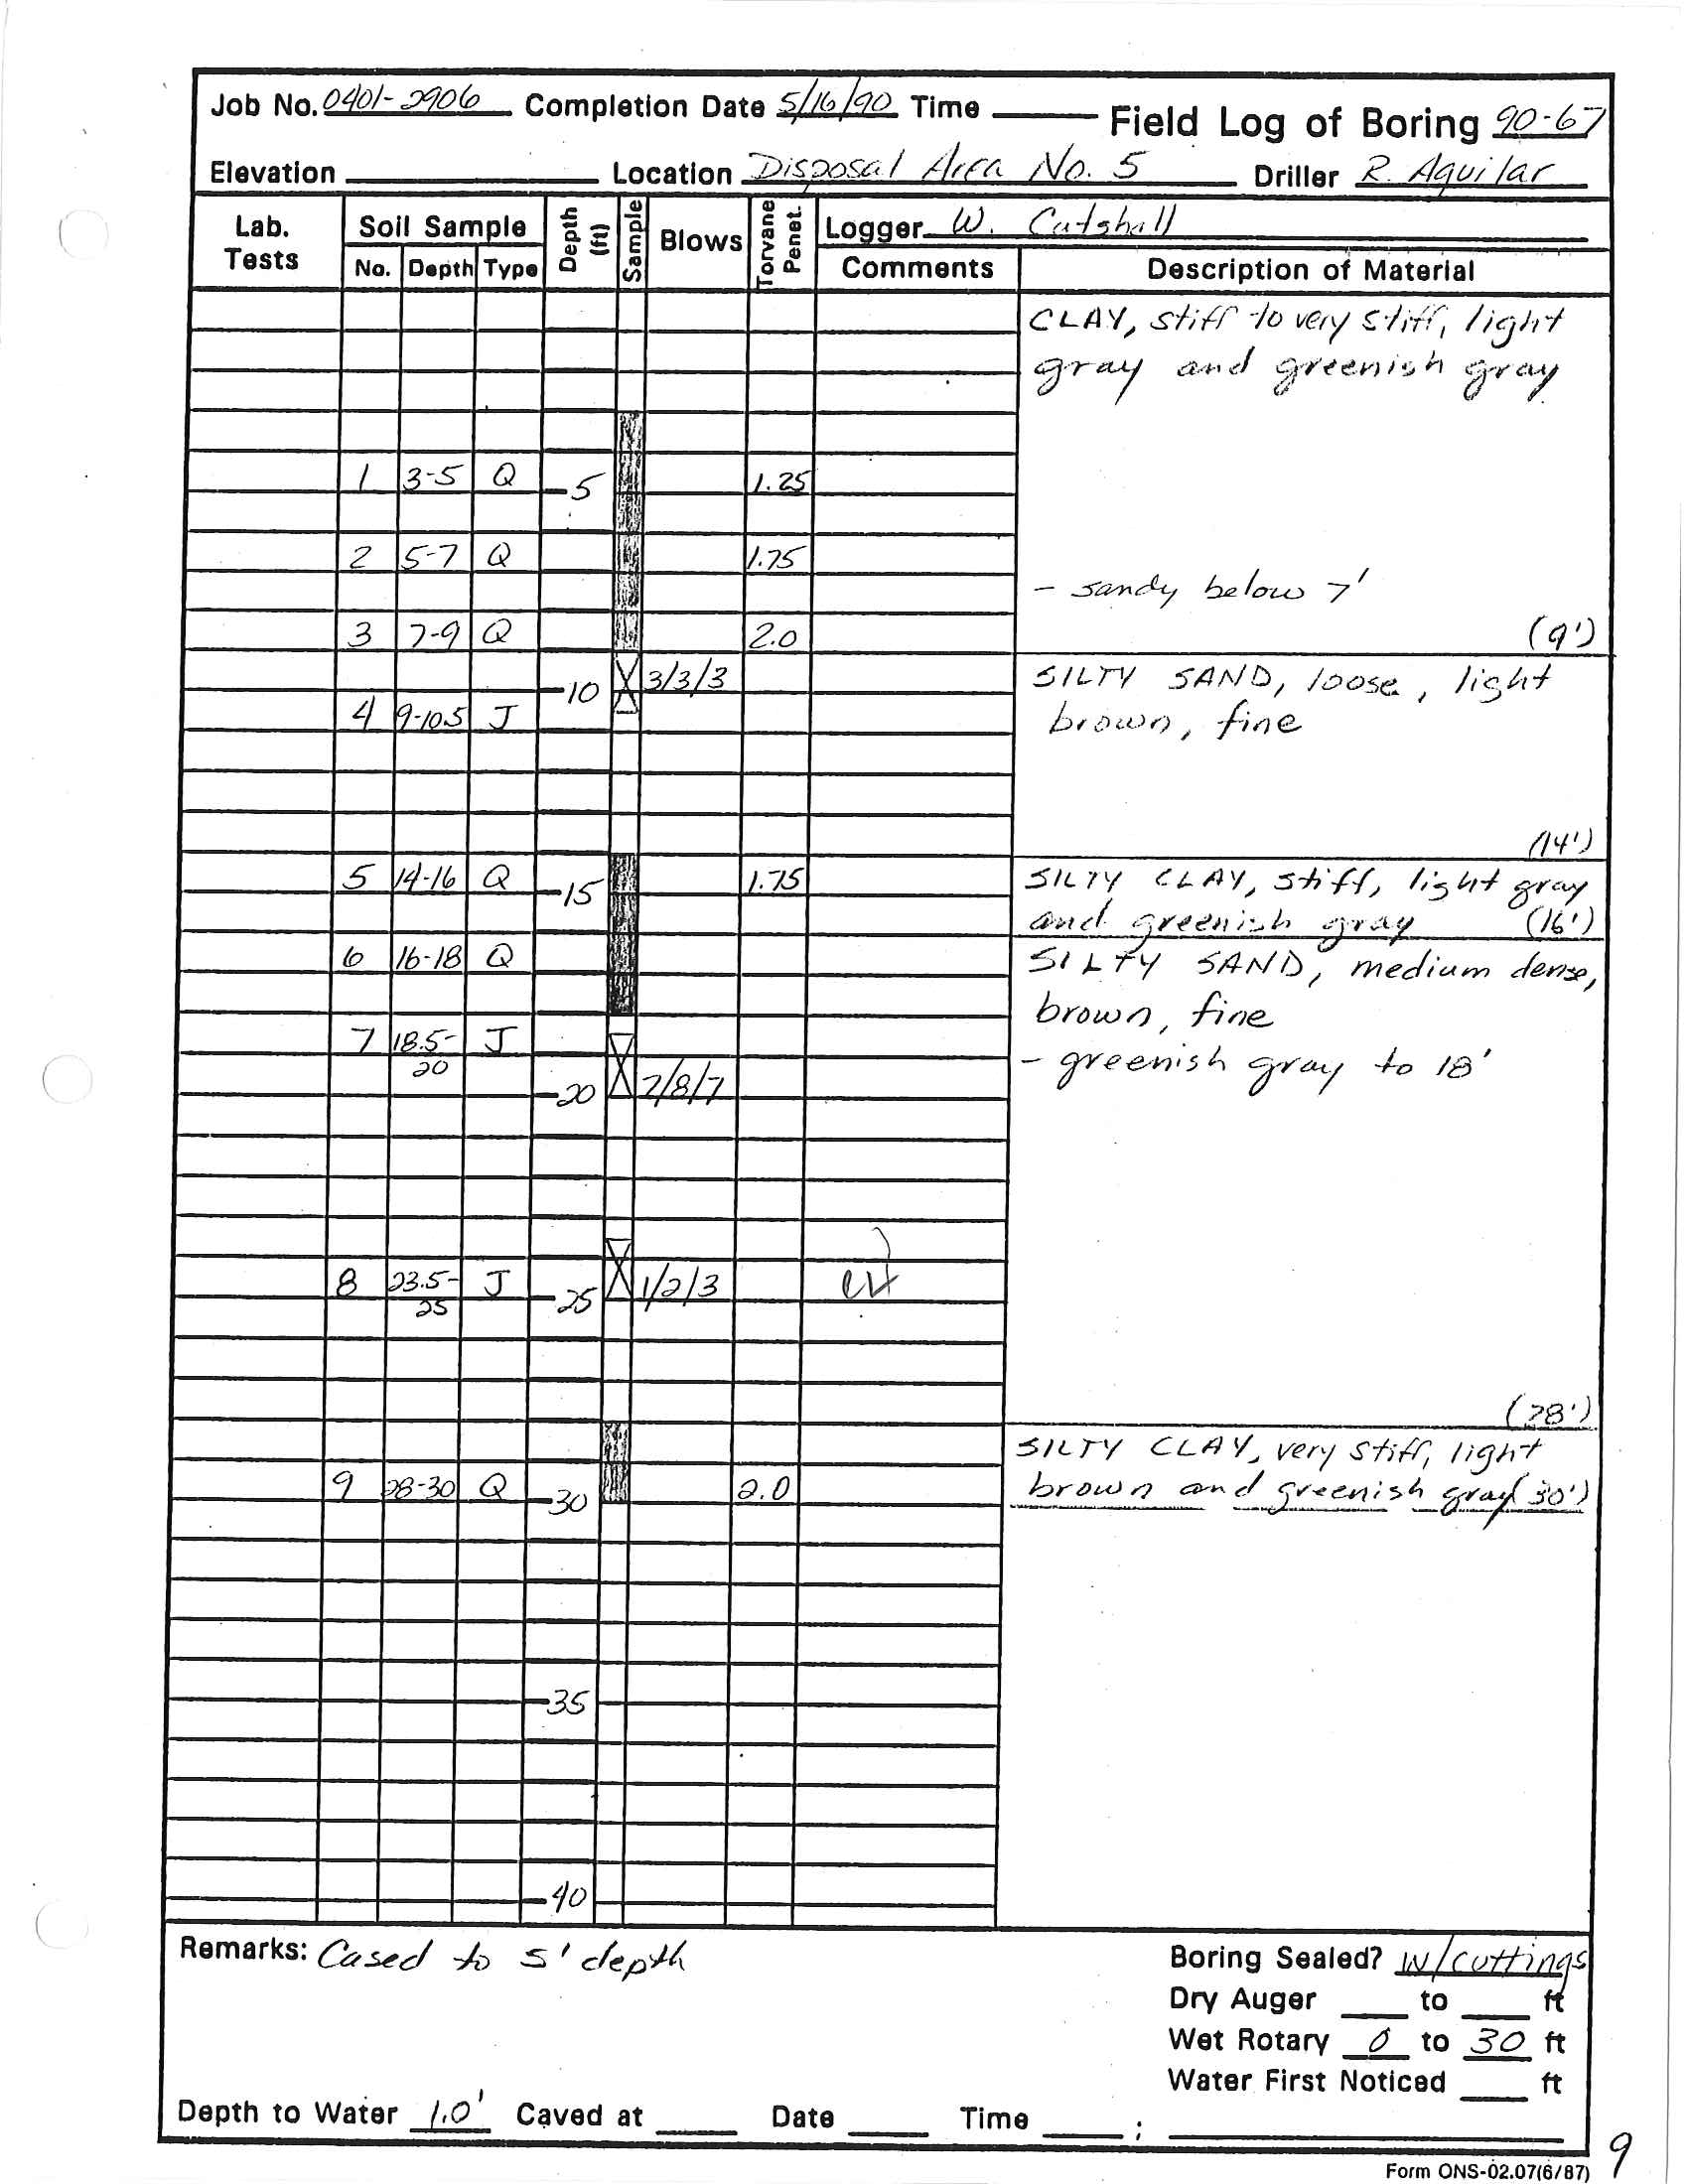 Job No. 0401-2906 Completion Date 5/16/90 Time Field Log of Boring 90-67
Elevation Location Disposal Area No. 5 Driller R. Aguilar
Lab. Tests Soil Sample Depth (ft) Sample Blows Torvane Penet. Logger W. Cutshall
No. Depth Type Comments Description of Material
CLAY, stiff to very stiff, light
gray and greenish gray
1 3-5 Q 5 1.25
2 5-7 Q 1.75
- sandy below 7'
3 7-9 Q 2.0 (9')
10 3/3/3 SILTY SAND, loose, light
4 9-10.5 J brown, fine
(14')
5 14-16 Q 15 1.75 SILTY CLAY, stiff, light gray
and greenish gray (16')
6 16-18 Q SILTY SAND, medium dense,
brown, fine
7 18.5- J
20
- greenish gray to 18'
20 7/8/7
8 23.5- J 25 1/2/3
25
(28')
SILTY CLAY, very stiff, light
9 28-30 Q 30 2.0 brown and greenish gray (30')
35
40
Remarks: Cased to 5' depth Boring Sealed? w/cuttings
Dry Auger to ft
Wet Rotary 0 to 30 ft
Water First Noticed ft
Depth to Water 1.0' Caved at Date Time ;
9
Form ONS-02.07(6/87)